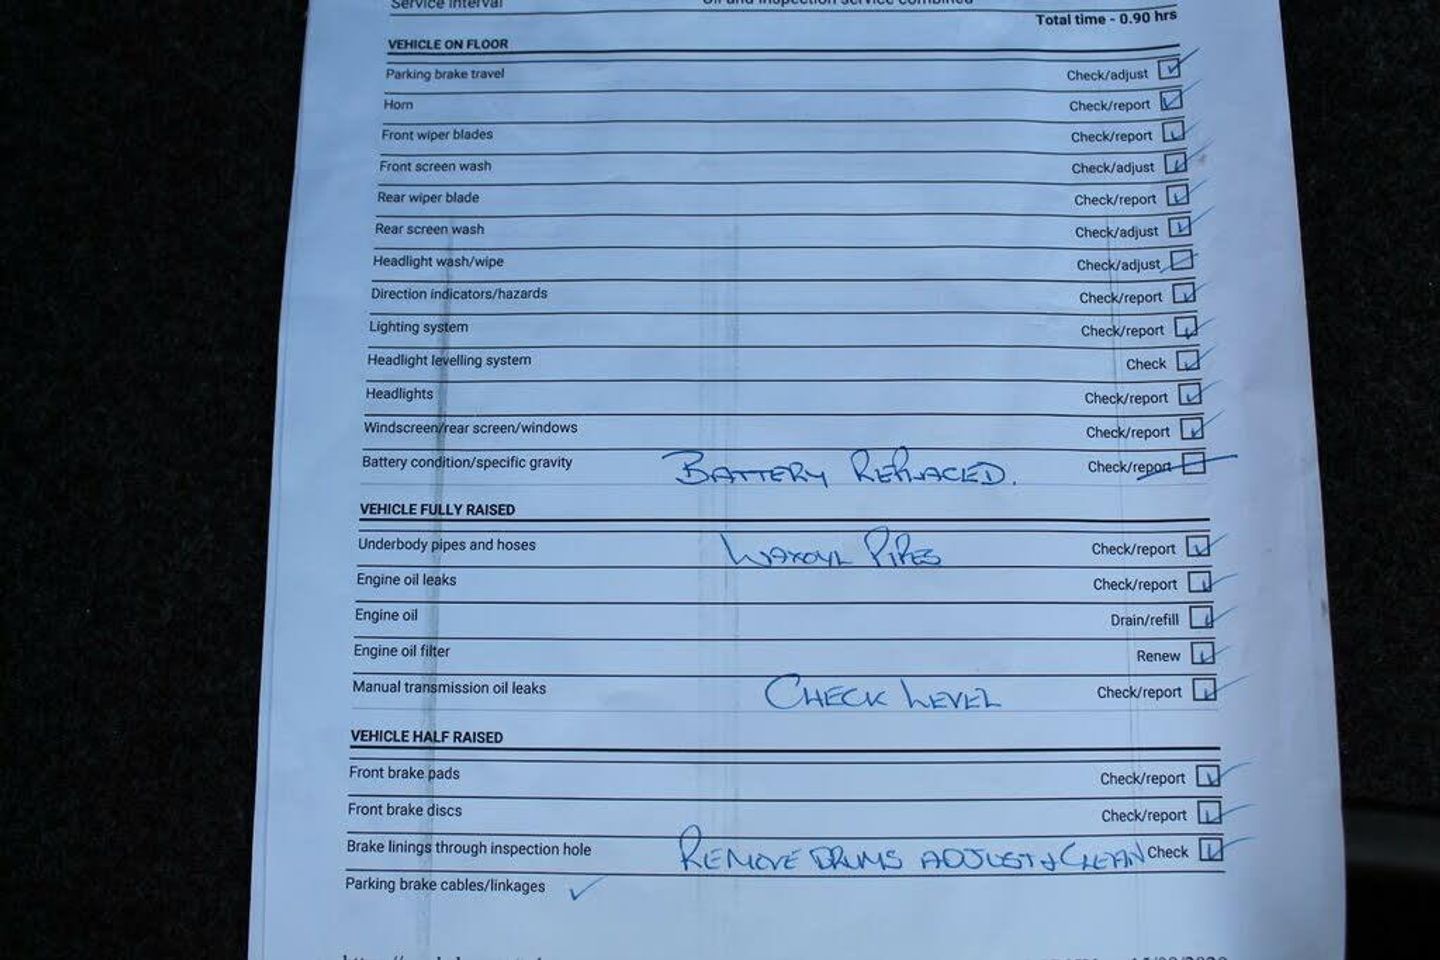 Service interval Oil and inspection service combined
Total time - 0.90 hrs
VEHICLE ON FLOOR
Parking brake travel Check/adjust
Horn Check/report
Front wiper blades Check/report
Front screen wash Check/adjust
Rear wiper blade Check/report
Rear screen wash Check/adjust
Headlight wash/wipe Check/adjust
Direction indicators/hazards Check/report
Lighting system Check/report
Headlight levelling system Check
Headlights Check/report
Windscreen/rear screen/windows Check/report
Battery condition/specific gravity BATTERY REPLACED. Check/report
VEHICLE FULLY RAISED
Underbody pipes and hoses WAXOYL PIPES Check/report
Engine oil leaks Check/report
Engine oil Drain/refill
Engine oil filter Renew
Manual transmission oil leaks CHECK LEVEL Check/report
VEHICLE HALF RAISED
Front brake pads Check/report
Front brake discs Check/report
Brake linings through inspection hole REMOVE DRUMS ADJUST & CLEAN Check
Parking brake cables/linkages